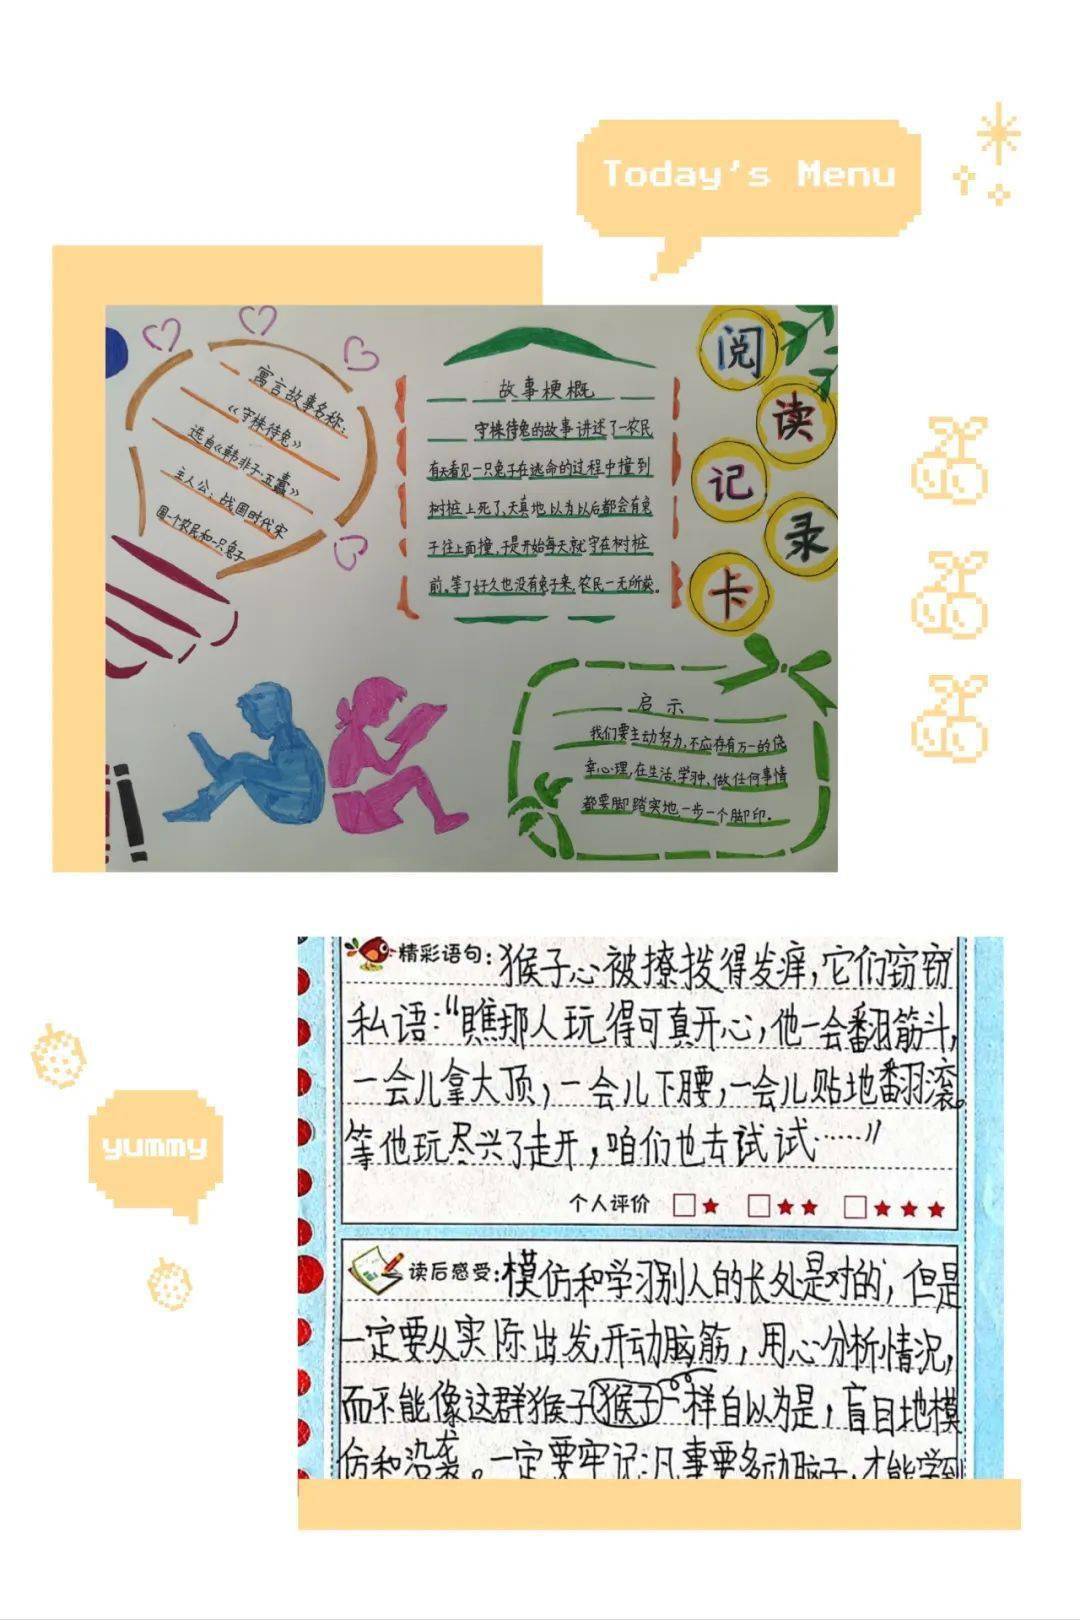 Today's Menu
阅
读
记
录
卡
寓言故事名称：
《守株待兔》
选自《韩非子·五蠹》
主人公：战国时代宋
国一个农民和一只兔子
故事梗概
守株待兔的故事讲述了一农民
有天看见一只兔子在逃命的过程中撞到
树桩上死了，天真地以为以后都会有兔
子往上面撞，于是开始每天就守在树桩
前。等了好久也没有兔子来，农民一无所获。
启示
我们要主动努力，不应存有万一的侥
幸心理，在生活、学习中、做任何事情
都要脚踏实地，一步一个脚印。
精彩语句：猴子心被撩拨得发痒，它们窃窃
私语："瞧那人玩得可真开心，他一会翻筋斗，
一会儿拿大顶，一会儿下腰，一会儿贴地翻滚。
等他玩尽兴了走开，咱们也去试试……"
个人评价
yummy
读后感受：模仿和学习别人的长处是对的，但是
一定要从实际出发，开动脑筋，用心分析情况，
而不能像这群猴子猴子一样自以为是，盲目地模
仿和没袭。一定要牢记：凡事要多动脑子，才能学到